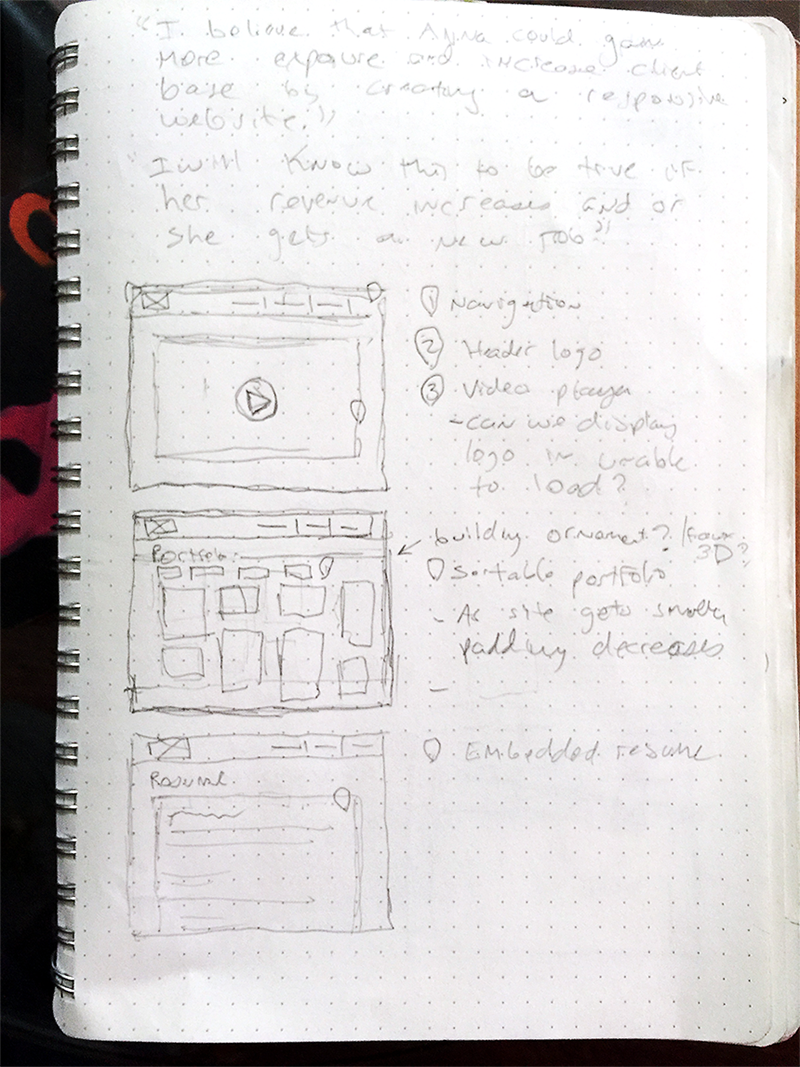 "I believe that Ajna could gain
more exposure and increase client
base by creating a responsive
website."
"I will know this to be true if
her revenue increases and or
she gets a new job"
1 Navigation
2 Header logo
3 Video player
- can we display
logo in unable
to load?
Portfolio
building ornament? / Faux
3D?
Sortable portfolio
- As site gets smaller
padding decreases
-
Resume
Embedded resume